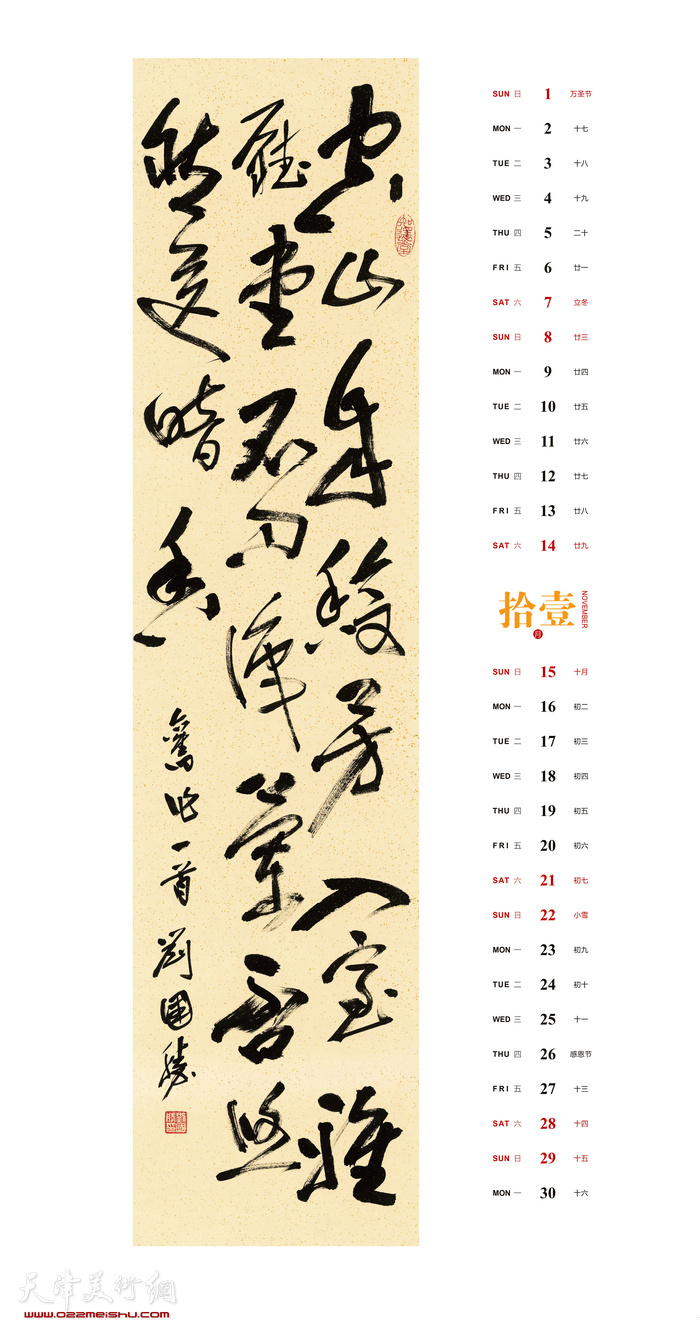 空山移芳入室雅
廳堂
然送暗香
舊作一首 劉國勝
SUN 日 1 万圣节
MON 一 2 十七
TUE 二 3 十八
WED 三 4 十九
THU 四 5 二十
FRI 五 6 廿一
SAT 六 7 立冬
SUN 日 8 廿三
MON 一 9 廿四
TUE 二 10 廿五
WED 三 11 廿六
THU 四 12 廿七
FRI 五 13 廿八
SAT 六 14 廿九
拾壹月 NOVEMBER
SUN 日 15 十月
MON 一 16 初二
TUE 二 17 初三
WED 三 18 初四
THU 四 19 初五
FRI 五 20 初六
SAT 六 21 初七
SUN 日 22 小雪
MON 一 23 初九
TUE 二 24 初十
WED 三 25 十一
THU 四 26 感恩节
FRI 五 27 十三
SAT 六 28 十四
SUN 日 29 十五
MON 一 30 十六
天津美術網
www.022meishu.com